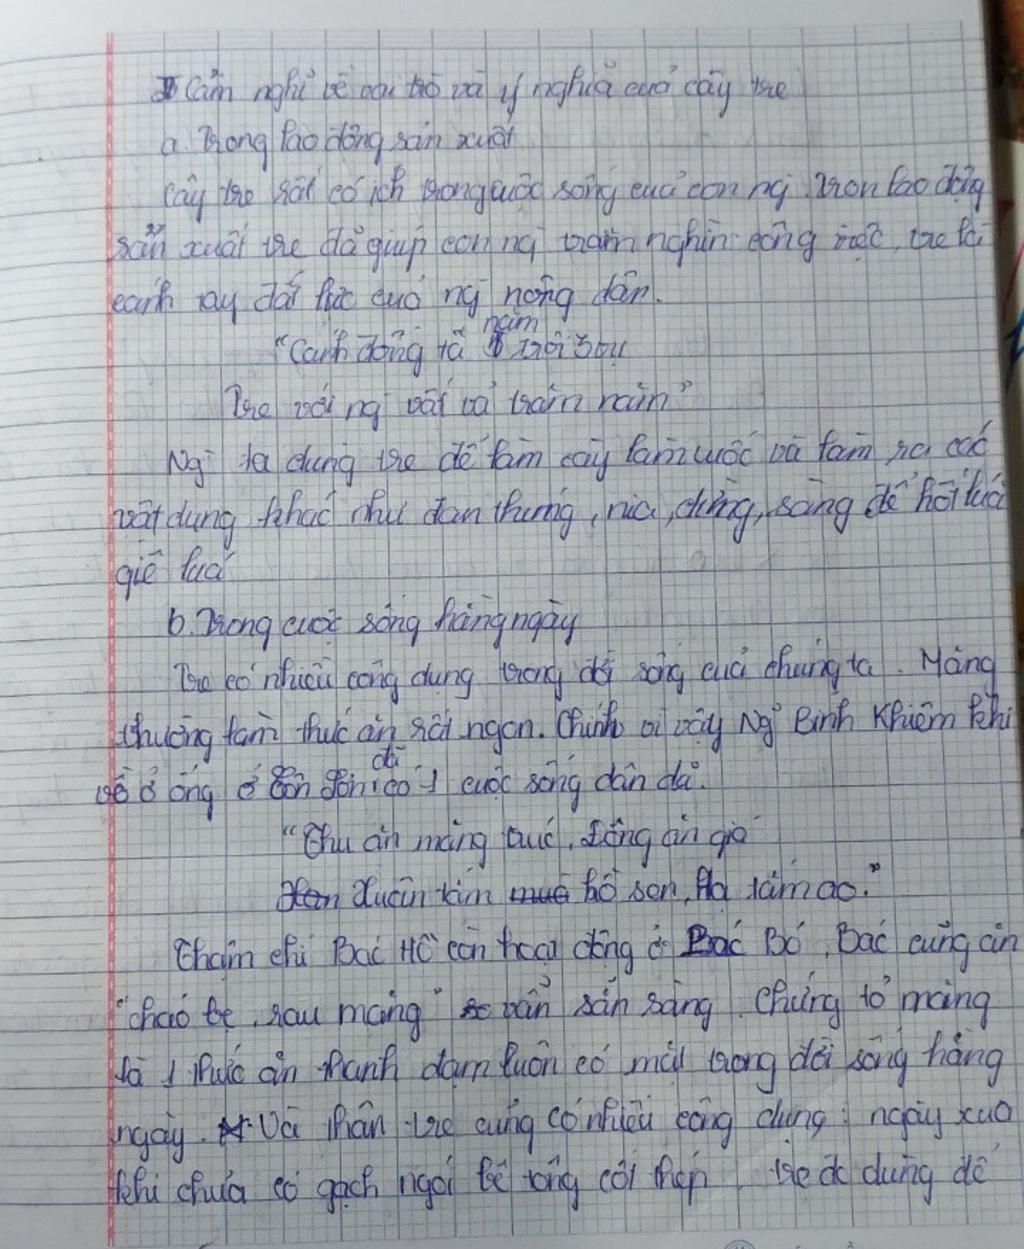 Cảm nghĩ về vai trò và ý nghĩa của cây tre
a. Trong lao động sản xuất
Cây tre rất có ích trong cuộc sống của con ng. Tron lao động
sản xuất tre đã giúp con ng trăm nghìn công việc, tre là
cánh tay đắc lực của ng nông dân.
"Cánh đồng ta năm đôi ba vụ
Tre với ng vất vả trăm năm"
Ng ta dùng tre để làm cày làm cuốc và làm ra các
vật dụng khác như đan thúng, nia, dừng, sàng để hót lúa
giê lúa
b. Trong cuộc sống hàng ngày
Tre có nhiều công dụng trong đời sống của chúng ta. Măng
thường làm thức ăn rất ngon. Chính vì vậy Ng Bỉnh Khiêm khi
về ở ông có 1 cuộc sống dân dã.
"Thu ăn măng trúc, Đông ăn giá
Xuân tắm hồ sen, Hạ tắm ao."
Thậm chí Bác Hồ còn hoạt động ở Bắc Bó, Bác cũng ăn
"cháo bẹ, rau măng" vẫn sẵn sàng. Chứng tỏ măng
là 1 thức ăn thanh đạm luôn có mặt trong đời sống hàng
ngày. Và thân tre cũng có nhiều công dụng: ngày xưa
khi chưa có gạch ngói bê tông cốt thép, tre đc dùng để